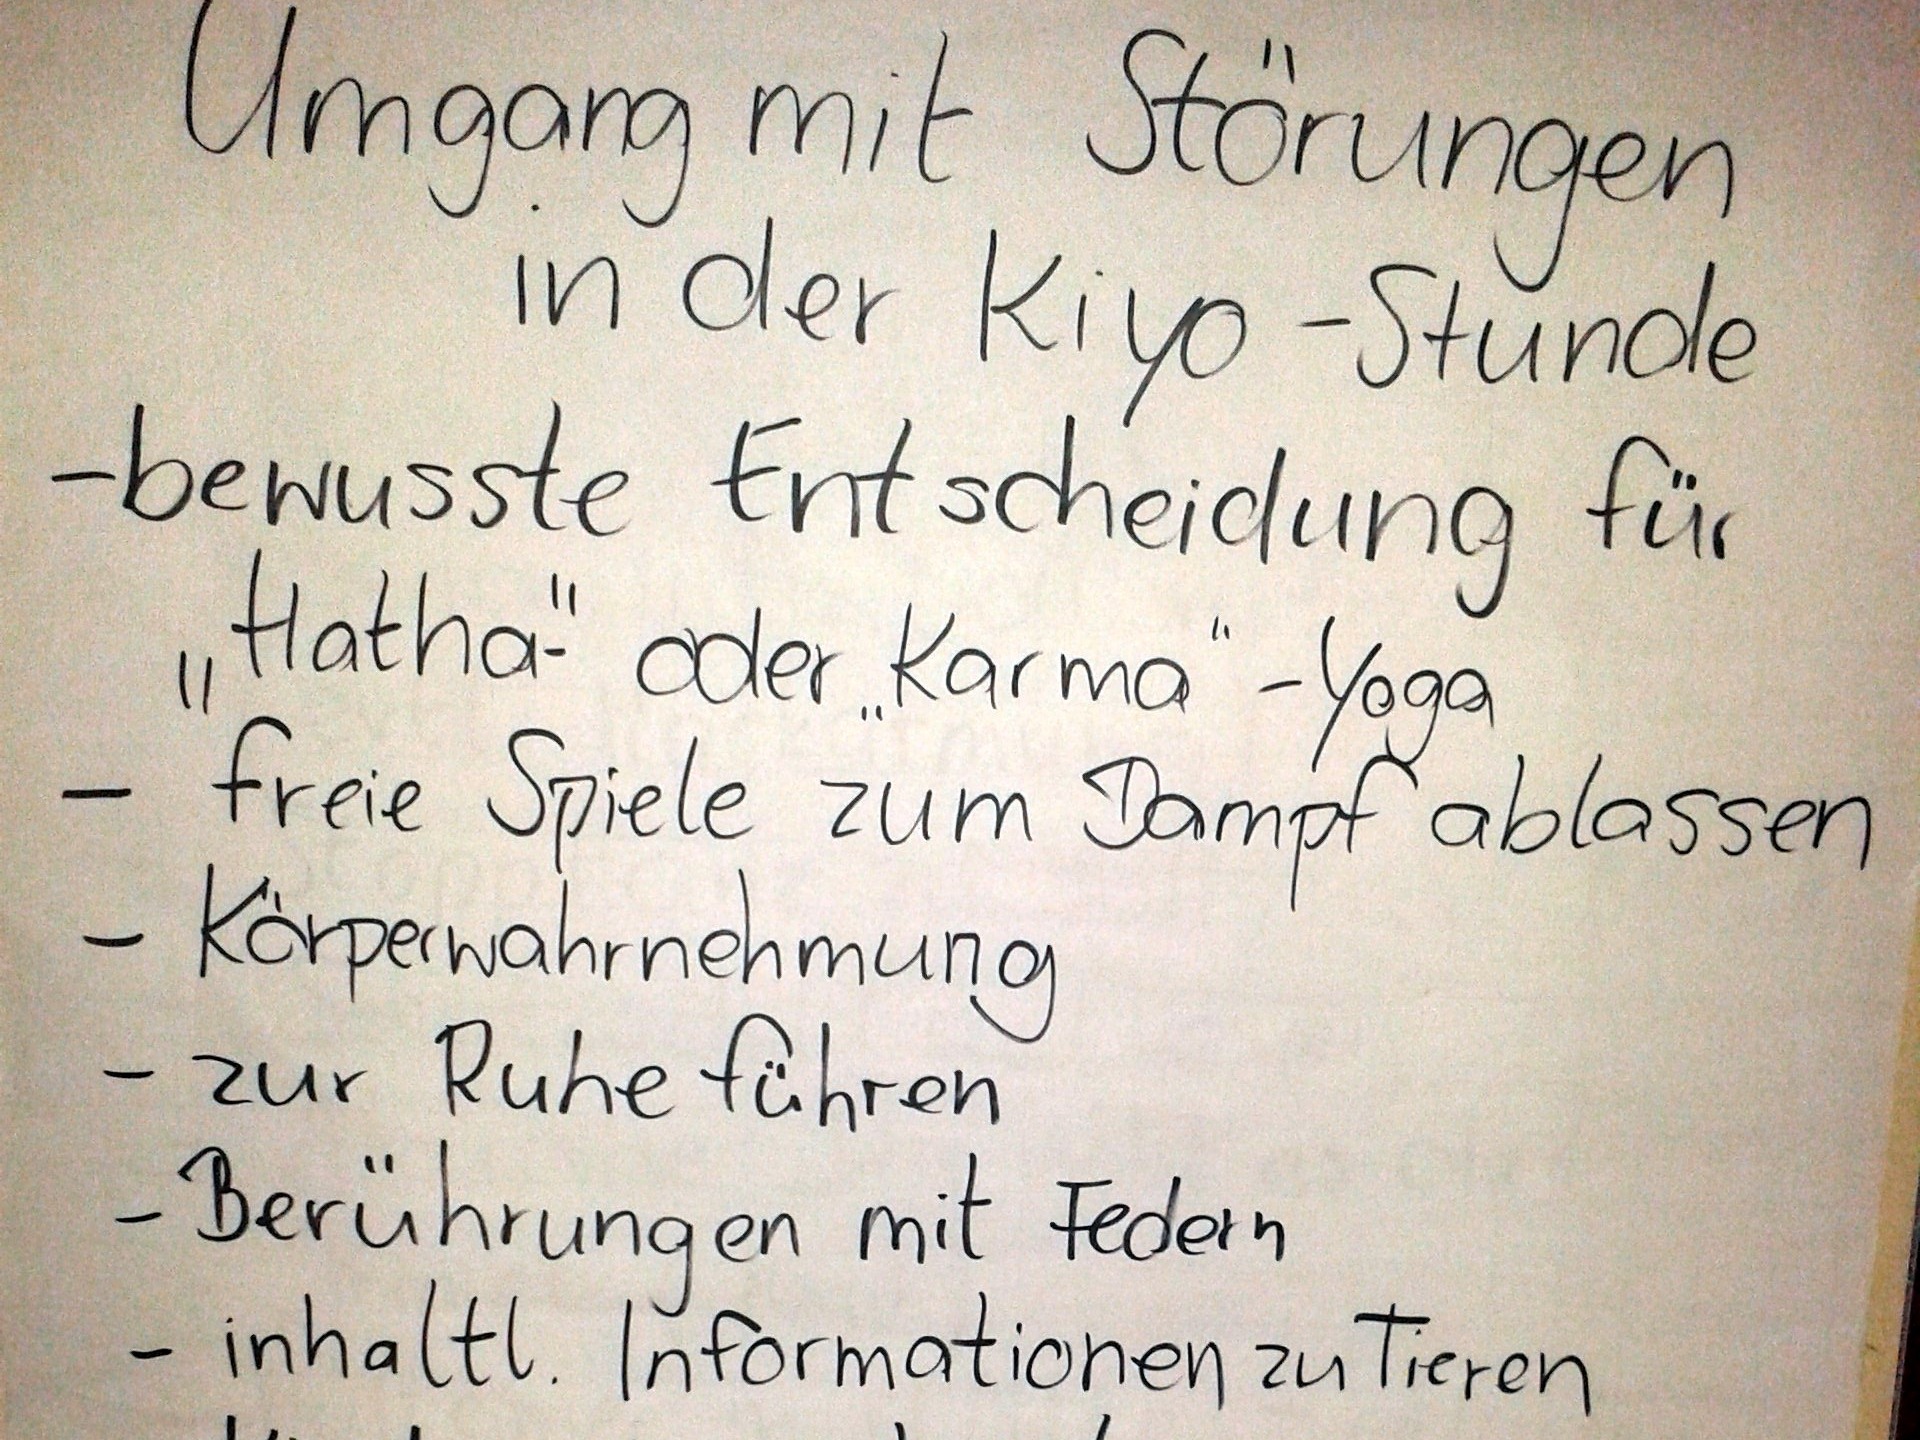 Umgang mit Störungen
in der Kiyo-Stunde
- bewusste Entscheidung für
„Hatha-" oder „Karma"-Yoga
- freie Spiele zum Dampf ablassen
- Körperwahrnehmung
- zur Ruhe führen
- Berührungen mit Federn
- inhaltl. Informationen zu Tieren